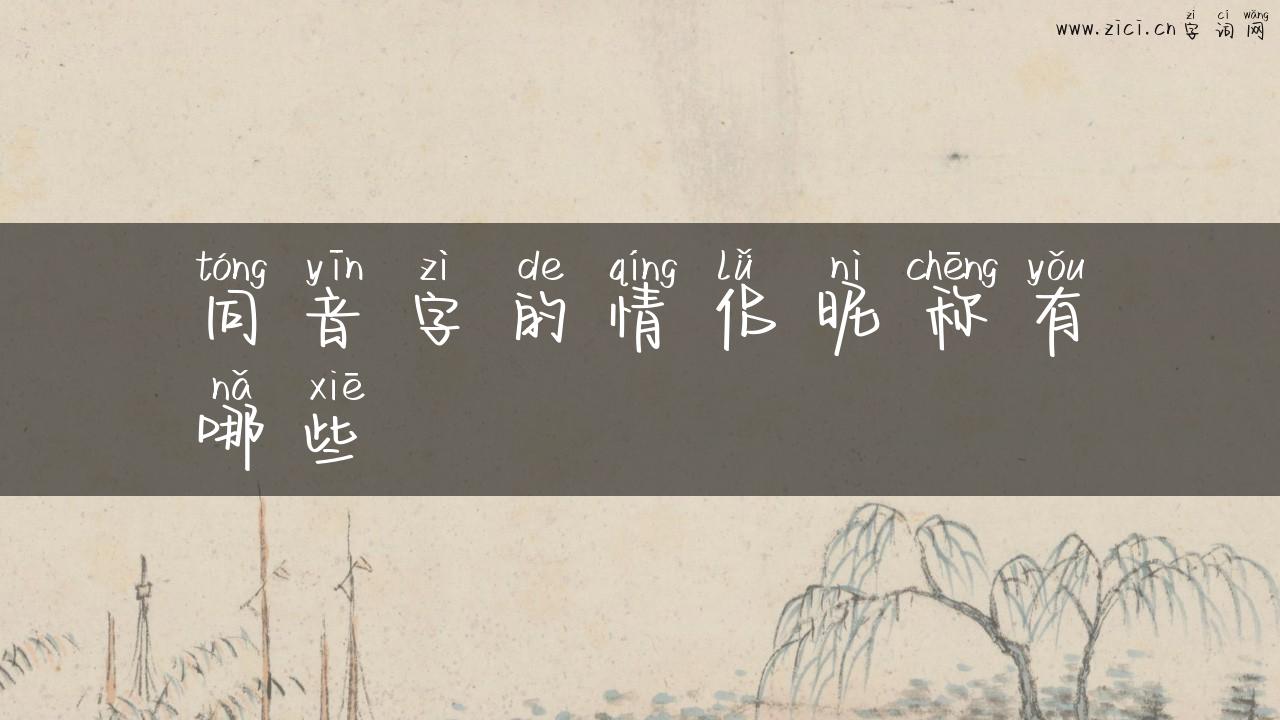 zì cí wǎng
www.zici.cn 字 词 网
tóng yīn zì de qíng lǚ nì chēng yǒu
同 音 字 的 情 侣 昵 称 有
nǎ xiē
哪 些